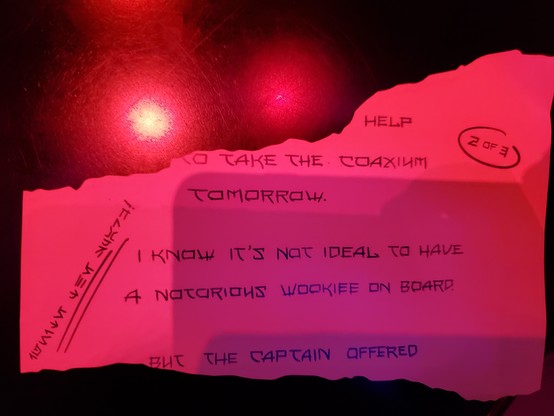 HELP
2 OF 3
TO TAKE THE COAXIUM
TOMORROW.
I KNOW IT'S NOT IDEAL TO HAVE
A NOTORIOUS WOOKIEE ON BOARD.
BUT THE CAPTAIN OFFERED